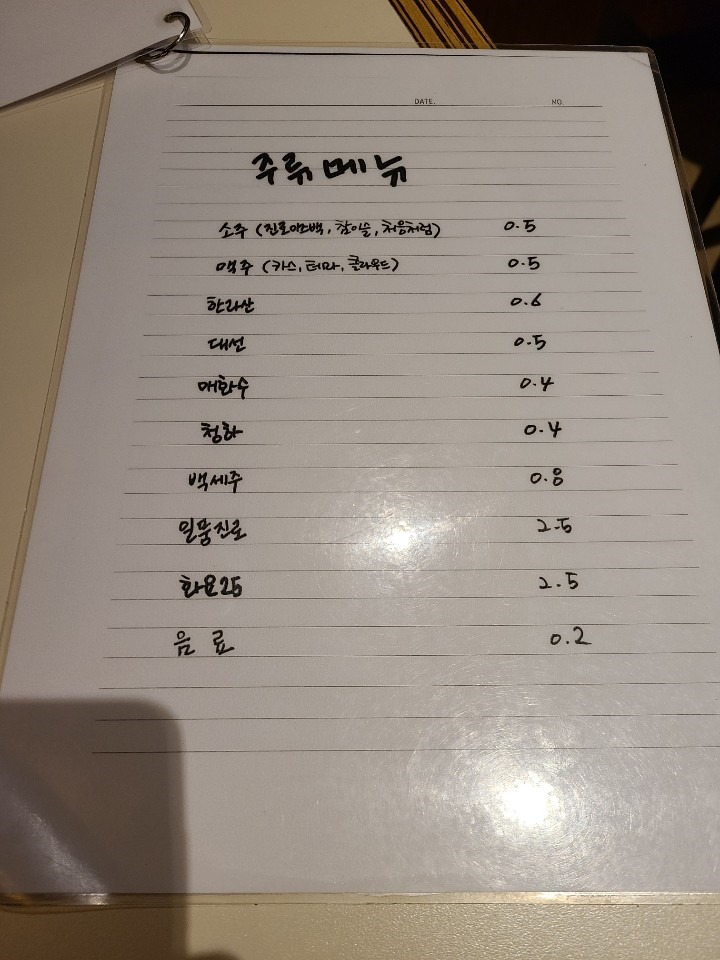 DATE. NO.
주류 메뉴
소주 (진로이즈백, 참이슬, 처음처럼) 0.5
맥주 (카스, 테라, 클라우드) 0.5
한라산 0.6
대선 0.5
매화수 0.4
청하 0.4
백세주 0.8
일품진로 2.5
화요25 2.5
음 료 0.2